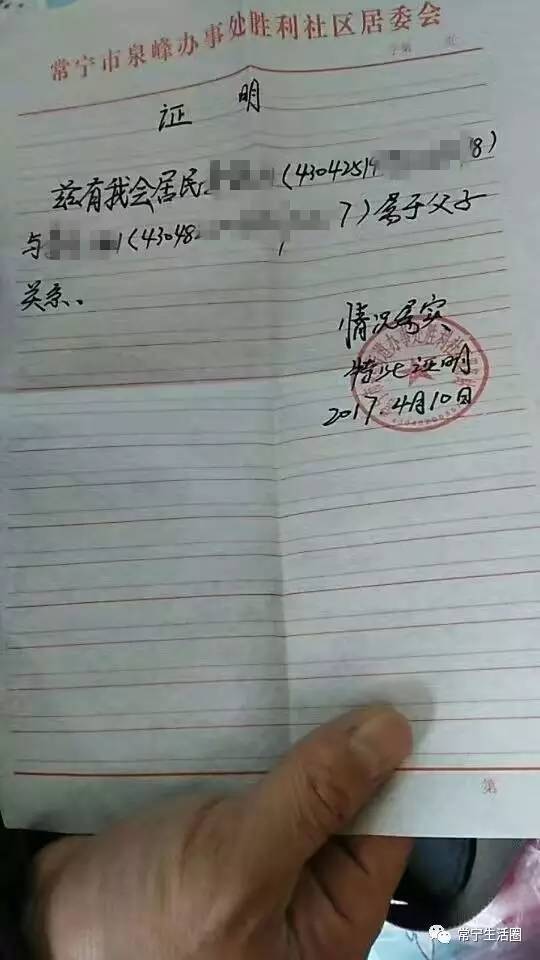 常宁市泉峰办事处胜利社区居委会
字第 页
证 明
兹有我会居民 (43042519 18)
与 1(430482 7)属于父子
关系..
情况属实
特此证明
2017.4月10日
第
常宁生活圈